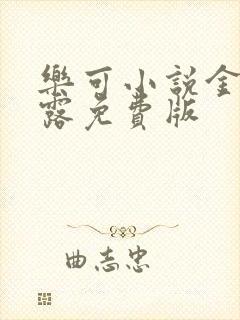 樂可小說金
露免費版
曲志忠